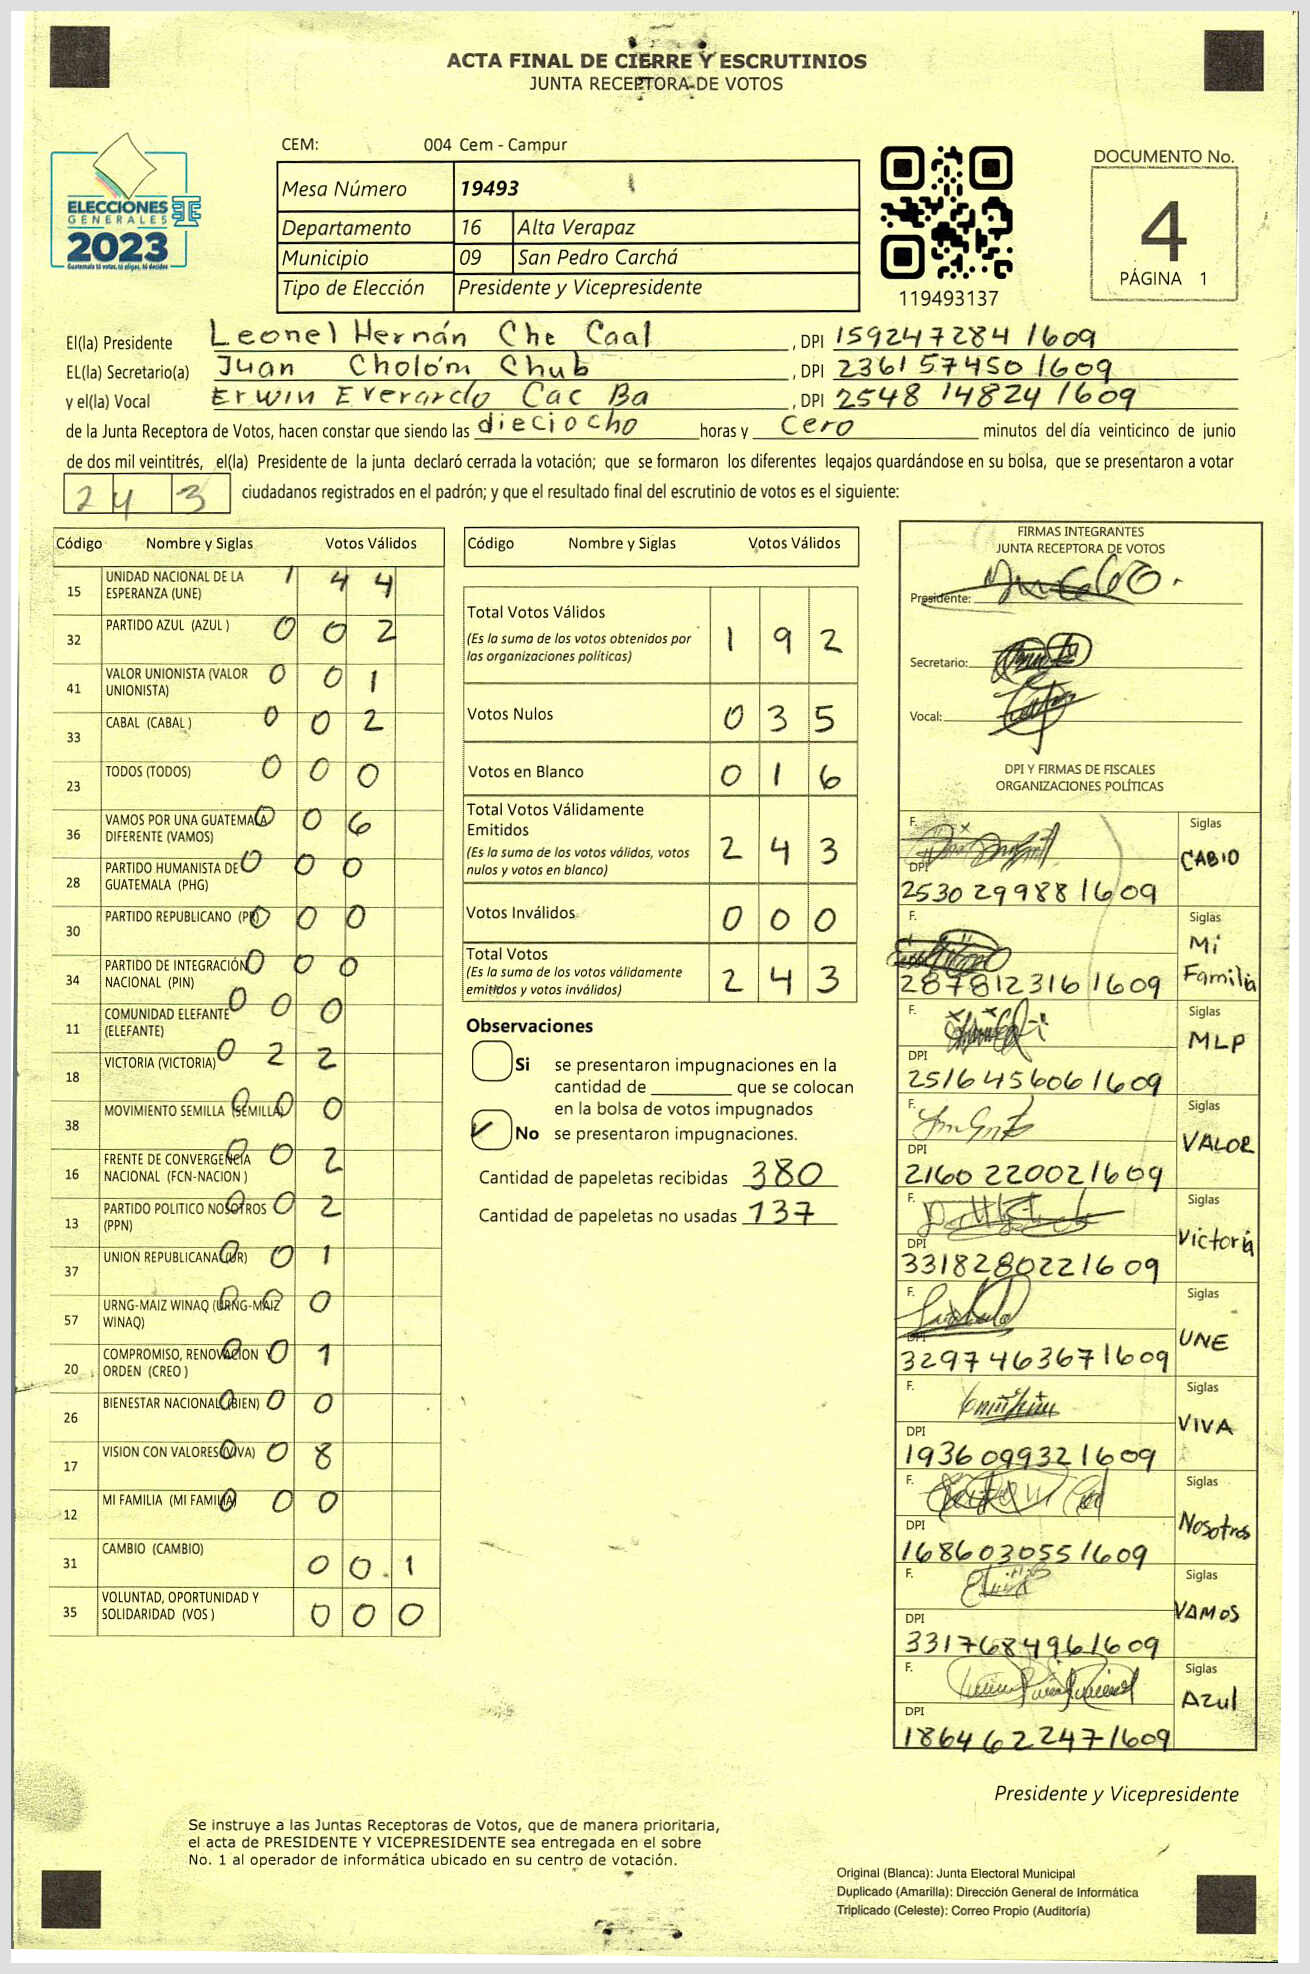 ACTA FINAL DE CIERRE Y ESCRUTINIOS
JUNTA RECEPTORA DE VOTOS
CEM: 004 Cem - Campur
Mesa Número 19493
Departamento 16 Alta Verapaz
Municipio 09 San Pedro Carchá
Tipo de Elección Presidente y Vicepresidente
ELECCIONES
GENERALES
2023
Guatemala tú votas, tú eliges, tú decides
119493137
DOCUMENTO No.
4
PÁGINA 1
El(la) Presidente Leonel Hernán Che Caal , DPI 159247284 1609
EL(la) Secretario(a) Juan Cholóm Chub , DPI 236157450 1609
y el(la) Vocal Erwin Everardo Cac Ba , DPI 2548 14824 1609
de la Junta Receptora de Votos, hacen constar que siendo las dieciocho horas y cero minutos del día veinticinco de junio
de dos mil veintitrés, el(la) Presidente de la junta declaró cerrada la votación; que se formaron los diferentes legajos guardándose en su bolsa, que se presentaron a votar
243 ciudadanos registrados en el padrón; y que el resultado final del escrutinio de votos es el siguiente:
Código Nombre y Siglas Votos Válidos
15 UNIDAD NACIONAL DE LA ESPERANZA (UNE) 1 4 4
32 PARTIDO AZUL (AZUL ) 0 0 2
41 VALOR UNIONISTA (VALOR UNIONISTA) 0 0 1
33 CABAL (CABAL ) 0 0 2
23 TODOS (TODOS) 0 0 0
36 VAMOS POR UNA GUATEMALA DIFERENTE (VAMOS) 0 0 6
28 PARTIDO HUMANISTA DE GUATEMALA (PHG) 0 0 0
30 PARTIDO REPUBLICANO (PR) 0 0 0
34 PARTIDO DE INTEGRACIÓN NACIONAL (PIN) 0 0 0
11 COMUNIDAD ELEFANTE (ELEFANTE) 0 0 0
18 VICTORIA (VICTORIA) 0 2 2
38 MOVIMIENTO SEMILLA (SEMILLA) 0 0 0
16 FRENTE DE CONVERGENCIA NACIONAL (FCN-NACION ) 0 0 2
13 PARTIDO POLITICO NOSOTROS (PPN) 0 0 2
37 UNION REPUBLICANA (UR) 0 0 1
57 URNG-MAIZ WINAQ (URNG-MAIZ WINAQ) 0 0 0
20 COMPROMISO, RENOVACION Y ORDEN (CREO ) 0 0 1
26 BIENESTAR NACIONAL (BIEN) 0 0 0
17 VISION CON VALORES (VIVA) 0 0 8
12 MI FAMILIA (MI FAMILIA) 0 0 0
31 CAMBIO (CAMBIO) 0 0 1
35 VOLUNTAD, OPORTUNIDAD Y SOLIDARIDAD (VOS ) 0 0 0
Código Nombre y Siglas Votos Válidos
Total Votos Válidos 1 9 2
(Es la suma de los votos obtenidos por
las organizaciones políticas)
Votos Nulos 0 3 5
Votos en Blanco 0 1 6
Total Votos Válidamente
Emitidos 2 4 3
(Es la suma de los votos válidos, votos
nulos y votos en blanco)
Votos Inválidos 0 0 0
Total Votos 2 4 3
(Es la suma de los votos válidamente
emitidos y votos inválidos)
Observaciones
Si se presentaron impugnaciones en la
cantidad de que se colocan
en la bolsa de votos impugnados
No se presentaron impugnaciones.
Cantidad de papeletas recibidas 380
Cantidad de papeletas no usadas 137
FIRMAS INTEGRANTES
JUNTA RECEPTORA DE VOTOS
Presidente:
Secretario:
Vocal:
DPI Y FIRMAS DE FISCALES
ORGANIZACIONES POLÍTICAS
F. Siglas
CABIO
DPI
2530 29988 1609
F. Siglas
Mi Familia
287812316 1609
F. Siglas
MLP
DPI
251645606 1609
F. Siglas
VALOR
DPI
2160 22002 1609
F. Siglas
Victoria
DPI
331828022 1609
F. Siglas
UNE
DPI
329746367 1609
F. Siglas
VIVA
DPI
193609932 1609
F. Siglas
Nosotros
DPI
168603055 1609
F. Siglas
VAMOS
DPI
331768496 1609
F. Siglas
Azul
DPI
186462247 1609
Presidente y Vicepresidente
Se instruye a las Juntas Receptoras de Votos, que de manera prioritaria,
el acta de PRESIDENTE Y VICEPRESIDENTE sea entregada en el sobre
No. 1 al operador de informática ubicado en su centro de votación.
Original (Blanca): Junta Electoral Municipal
Duplicado (Amarilla): Dirección General de Informática
Triplicado (Celeste): Correo Propio (Auditoría)